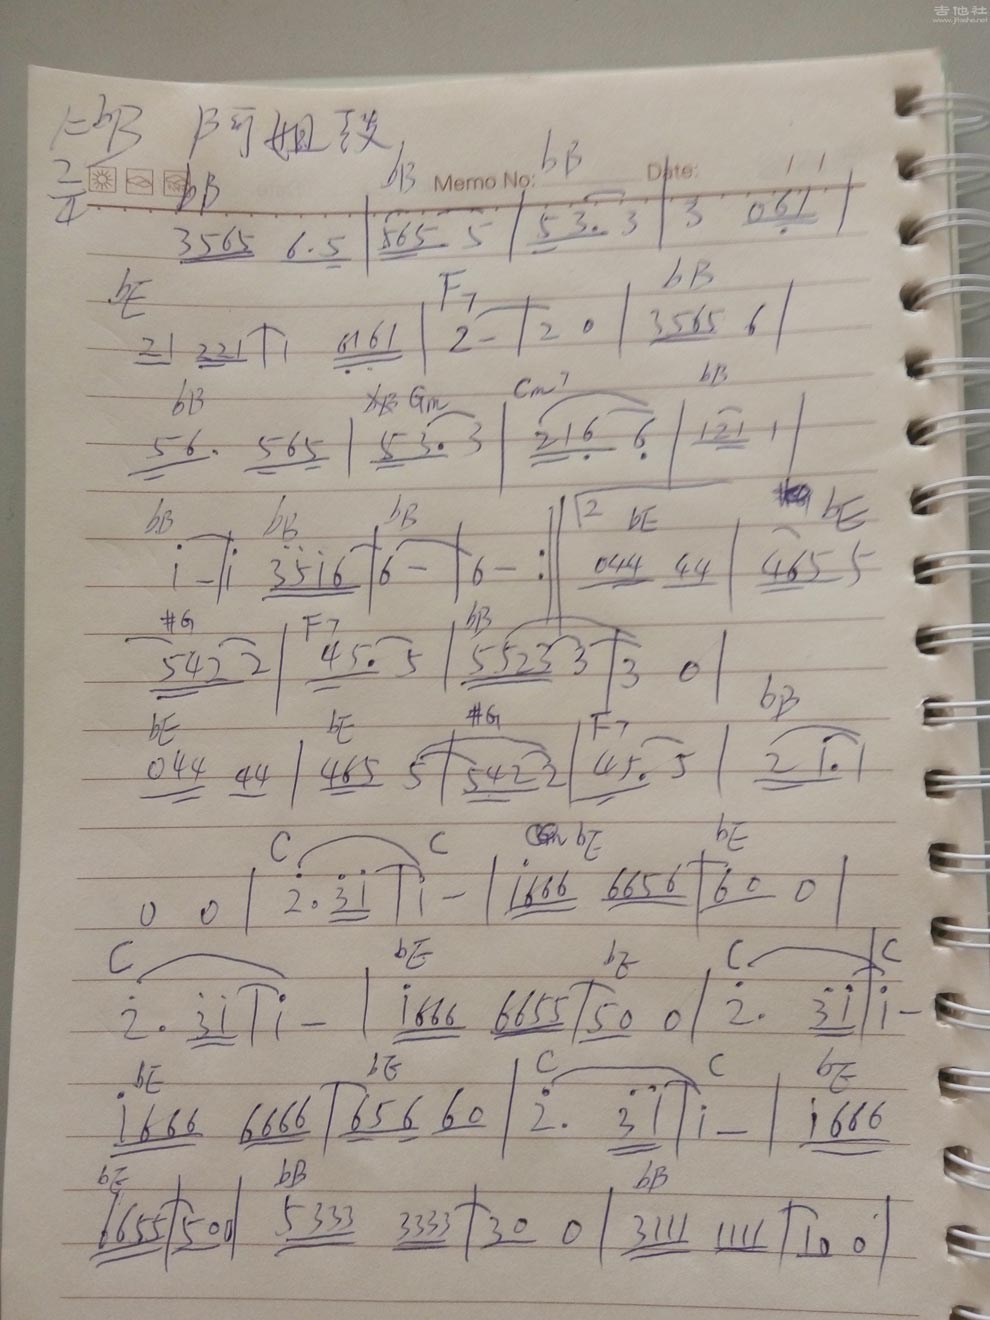 吉他社
www.jitashe.net
1=bB 阿姐鼓
2/4
Memo No: Date:
bB bB bB
3565 6·5 | 565· 5 | 53· 3 | 3 061 |
bE F7 bB
21 221 | 1 6161 | 2 - | 2 0 | 3565 6 |
bB Gm Cm7 bB
56· 565 | 53· 3 | 216 6 | 121 1 |
bB bB bB 2 bE bE
1 - | 1 3516 | 6 - | 6 - :‖ 044 44 | 465 5
#G F7 bB
5422 2 | 45· 5 | 5523 3 | 3 0 |
bE bE #G F7 bB
044 44 | 465 5 | 5422 2 | 45· 5 | 2 1· 1
C C bE bE
0 0 | 2· 31 | 1 - | 1666 6656 | 60 0 |
C bE bE C C
2· 31 | 1 - | 1666 6655 | 50 0 | 2· 31 | 1 -
bE bE C C bE
1666 6666 | 656 60 | 2· 31 | 1 - | 1666
bE bB bB
6655 | 500 | 5333 3333 | 30 0 | 3111 1111 | 10 0 |